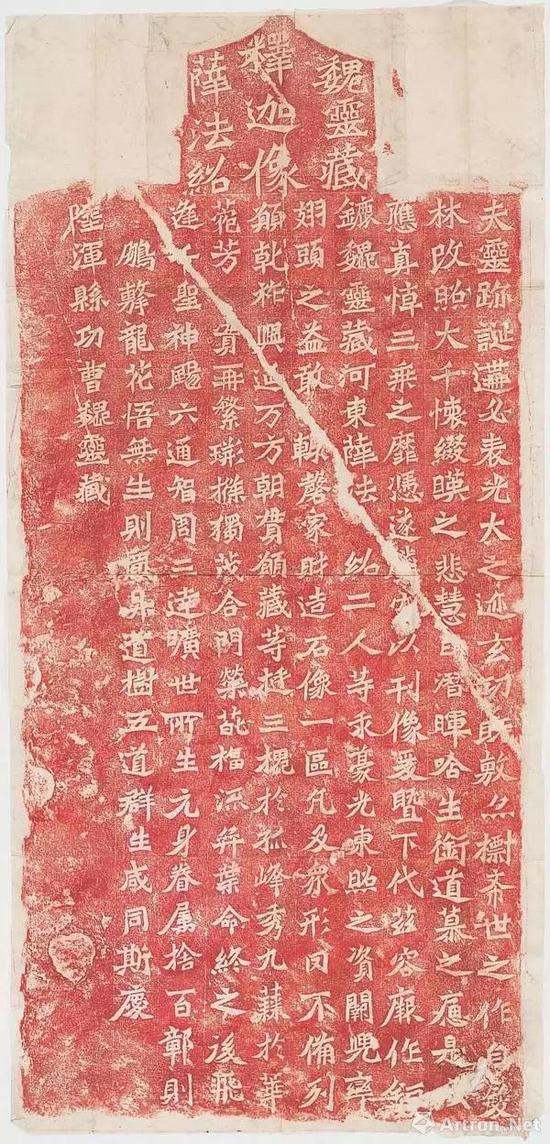 魏靈藏
釋迦像
薛法紹
夫靈跡誕遘必表光大之迹玄功既敷亦標希世之作自雙
林改照大千懷綴暎之悲慧日潛暉唅生銜道慕之痛是
應真悼三乘之靡憑遂騰空以刊像爰暨下代茲容廠作鉅
鏕魏靈藏河東薛法紹二人等求豪光東照之資闕兜率
翅頭之益敢輒罄家財造石像一區凡及眾形罔不備列
願乾祚興延万方朝貫願藏等挺三槐於孤峰秀九蕀於華
菀芳實再繁荊條獨茂合門榮葩福流奕葉命終之後飛
逢千聖神颺六通智周三達曠世所生元身眷屬捨百鄣則
鵬擊龍花悟無生則鳳昇道樹五道群生咸同斯慶
陸渾縣功曹魏靈藏
Artron.Net